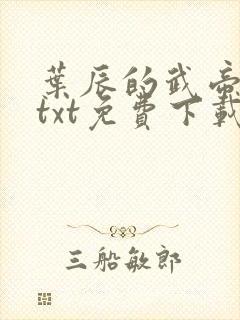 葉辰的武帝
txt免費下載
三船敏郎